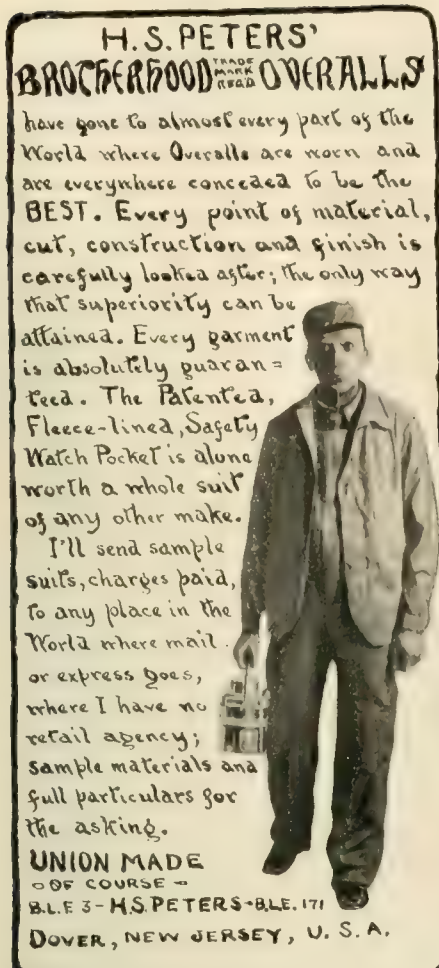 H.S. PETERS'
BROTHERHOOD TRADE MARK REG'D OVERALLS
have gone to almost every part of the
World where Overalls are worn and
are everywhere conceded to be the
BEST. Every point of material,
cut, construction and finish is
carefully looked after; the only way
that superiority can be
attained. Every garment
is absolutely guaran=
teed. The Patented,
Fleece-lined, Safety
Watch Pocket is alone
worth a whole suit
of any other make.
I'll send sample
suits, charges paid,
to any place in the
World where mail
or express goes,
where I have no
retail agency;
sample materials and
full particulars for
the asking.
UNION MADE
- OF COURSE -
B.L.F. 3 - H.S. PETERS - B.L.E. 171
DOVER, NEW JERSEY, U. S. A.